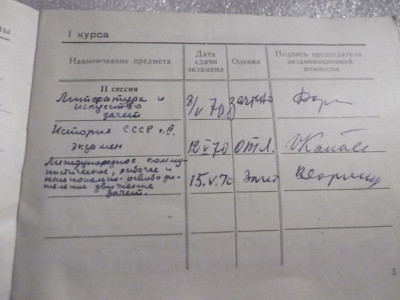 I курса
Наименование предмета
Дата сдачи экзамена
Оценка
Подпись председателя экзаменационной комиссии
II сессия
Литература и искусство зачет
8/V 70 зачтено
История СССР ч. II экзамен
12 V 70 отл.
Международное коммунистическое, рабочее и национально-освободительное движение зачет.
15.V.70 Зачет
3